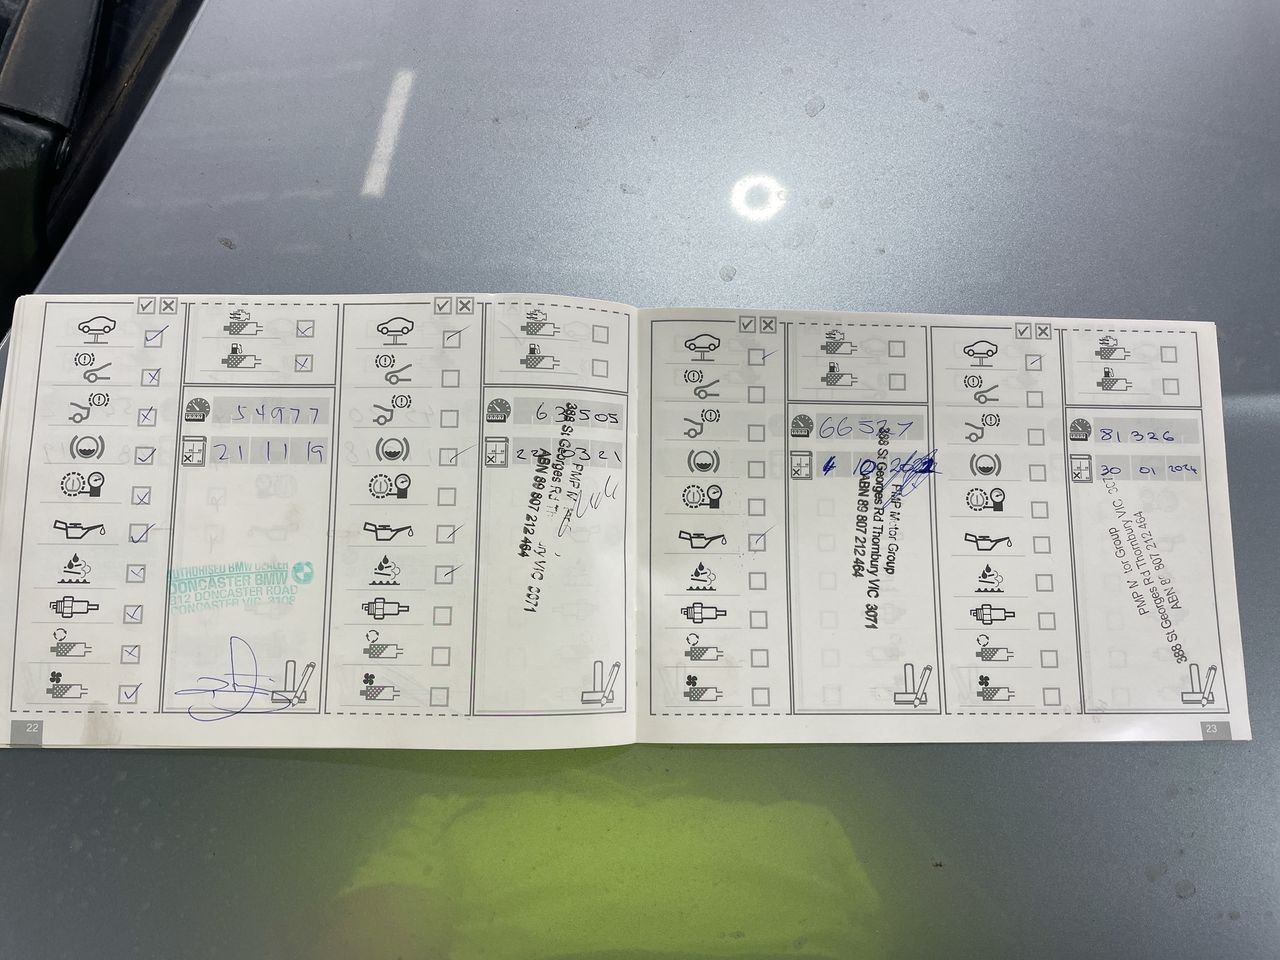 54977
21 11 19
AUTHORISED BMW DEALER
DONCASTER BMW
812 DONCASTER ROAD
DONCASTER VIC 3108
22
388 St Georges Rd
ABN 89 807 212 464
VIC 3071
PMP Motor Group
388 St Georges Rd Thornbury VIC 3071
ABN 89 807 212 464
81326
30 01 2024
PMP Motor Group
388 St Georges Rd Thornbury VIC 3071
ABN 89 807 212 464
23